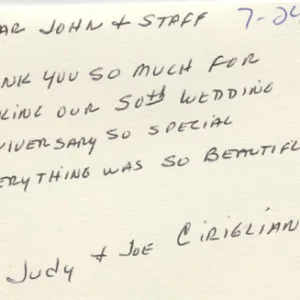 AR JOHN & STAFF 7-24
NK YOU SO MUCH FOR
KING OUR 50th WEDDING
IVERSARY SO SPECIAL
ERYTHING WAS SO BEAUTIFL
Judy & JOE CIRIGLIAN